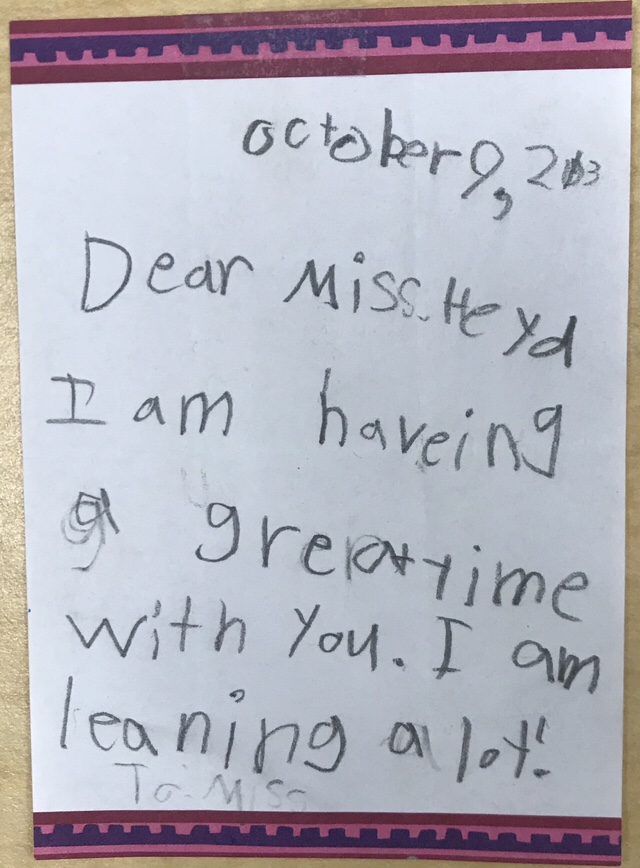 October 9, 2013
Dear Miss. Heyd
I am haveing
a great time
with you. I am
leaning a lot!
To: Miss